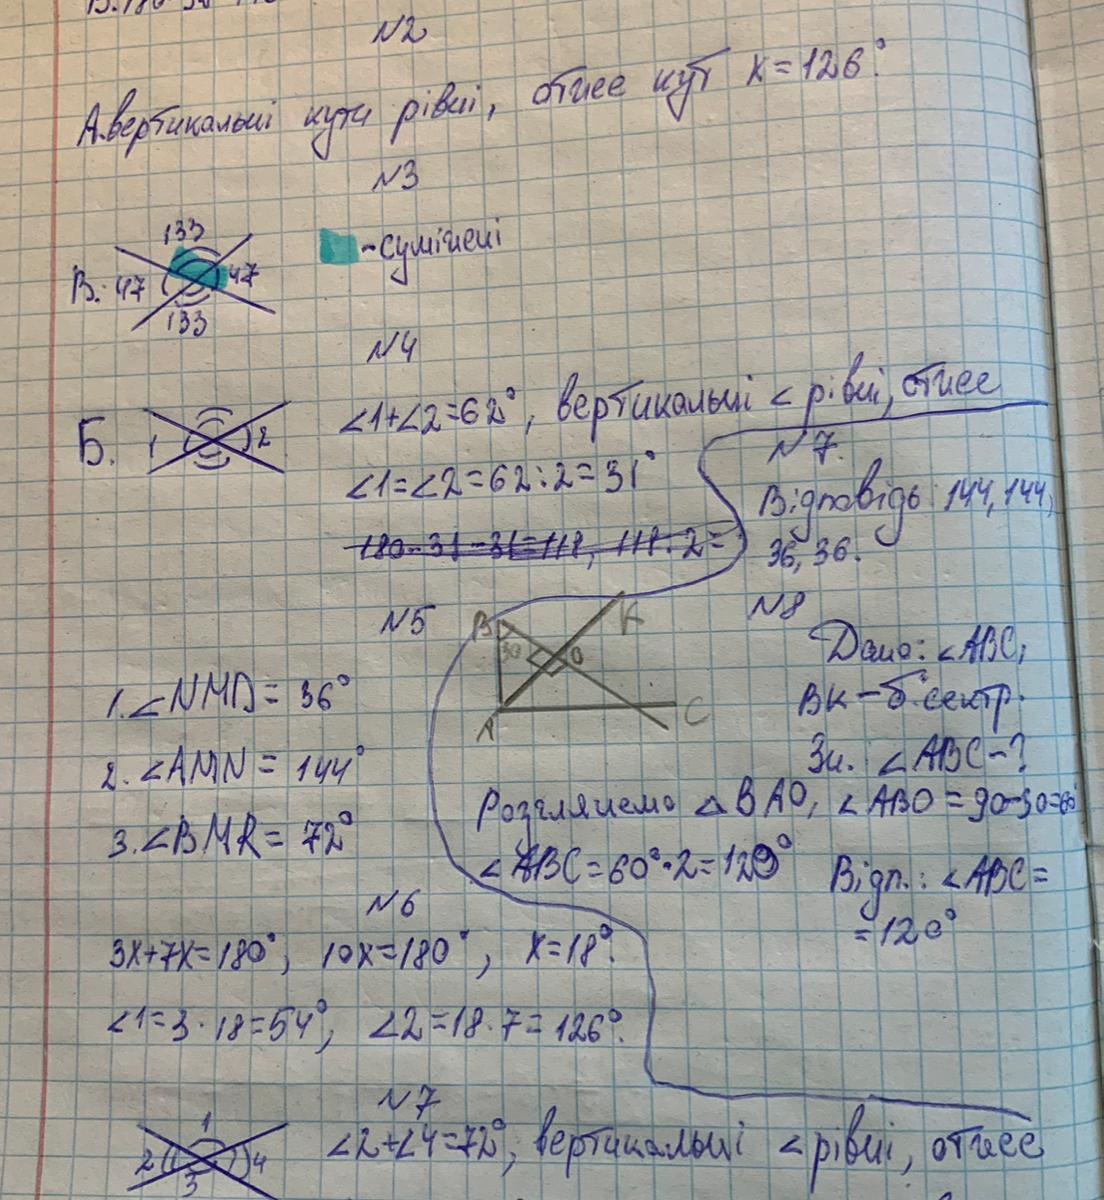 N2
А. вертикальні кути рівні, отже кут x = 126°.
N3
133
В. 47
47
133
-суміжні
N4
Б. 1 2
∠1+∠2=62°, вертикальні ∠ рівні, отже
∠1=∠2=62:2=31°
180-31-31=118, 118:2=
N5
1. ∠NMD = 36°
2. ∠AMN = 144°
3. ∠BMR = 72°
N6
3x+7x=180°, 10x=180°, x=18°.
∠1=3·18=54°, ∠2=18·7=126°.
N7.
Відповідь: 144, 144,
36, 36.
N8
B K
30 O
A C
Дано: ∠ABC,
BK - бісектр.
Зн. ∠ABC-?
Розглянемо △BAO, ∠ABO = 90-30=60°
∠ABC=60°·2=120°
Відп.: ∠ABC=
=120°
N7
1
2 4
3
∠2+∠4=72°, вертикальні ∠ рівні, отже